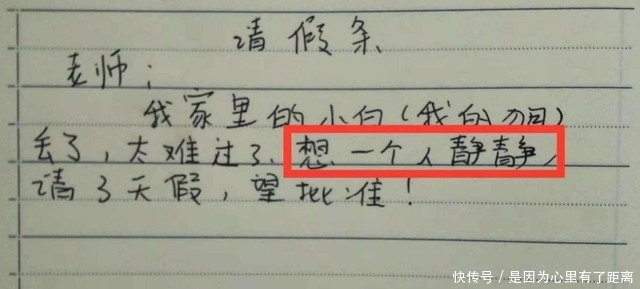 请假条
老师：
我家里的小白（我的狗）
丢了，太难过了、想一个人静静，
请3天假，望批准！
快传号／是因为心里有了距离